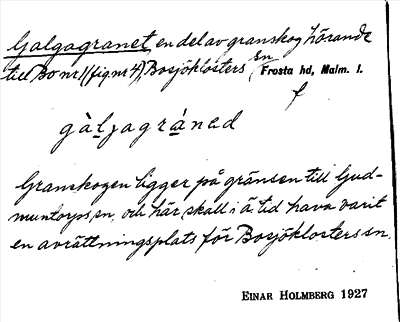 Galgagranet, en del av granskog hörande
till Bo nr 1 (fig nr 4), Bosjöklosters sn Frosta hd, Malm. l.
f
gàljagránəd
Granskogen ligger på gränsen till Gud-
muntorps sn, och här skall i ä. tid hava varit
en avrättningsplats för Bosjöklosters sn.
EINAR HOLMBERG 1927